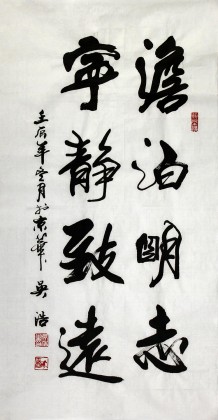 澹泊明志
寧静致遠
壬辰年冬月於京華 吴浩